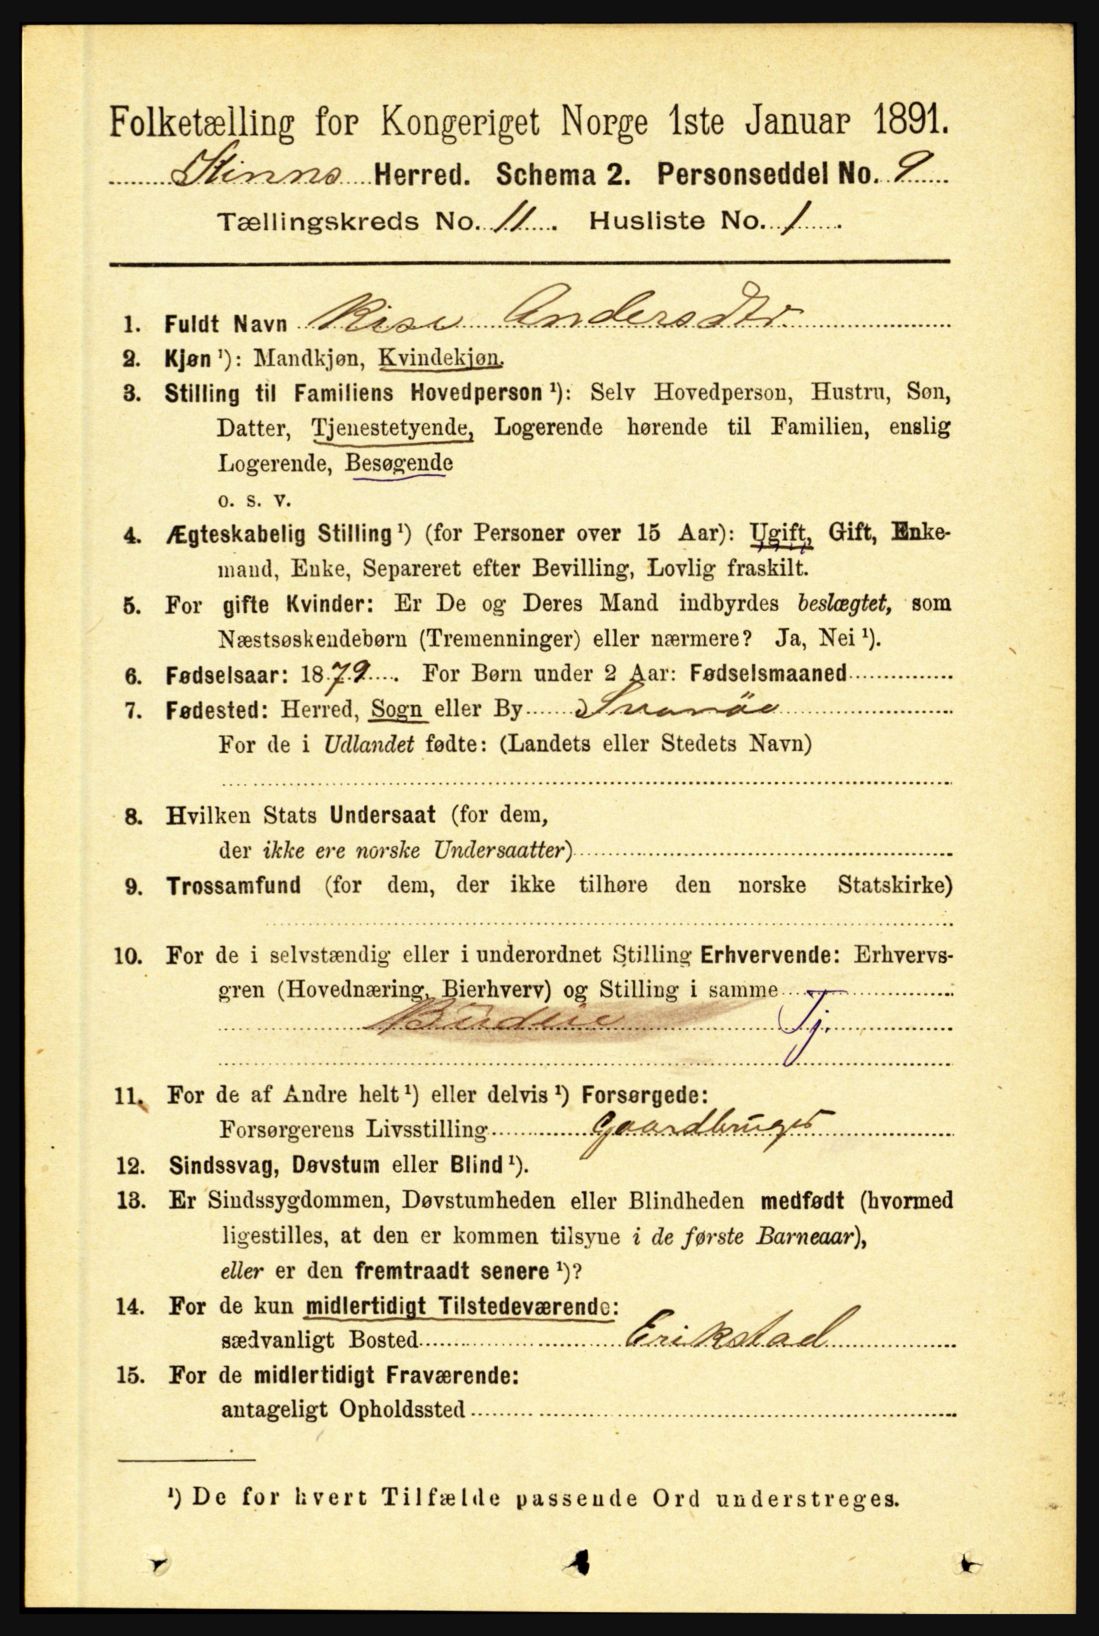 Folketælling for Kongeriget Norge 1ste Januar 1891.
Kinns Herred. Schema 2. Personseddel No. 9
Tællingskreds No. 11. Husliste No. 1.
1. Fuldt Navn Risi Andersdtr
2. Kjøn ¹): Mandkjøn, Kvindekjøn.
3. Stilling til Familiens Hovedperson ¹): Selv Hovedperson, Hustru, Søn,
Datter, Tjenestetyende, Logerende hørende til Familien, enslig
Logerende, Besøgende
o. s. v.
4. Ægteskabelig Stilling ¹) (for Personer over 15 Aar): Ugift, Gift, Enke-
mand, Enke, Separeret efter Bevilling, Lovlig fraskilt.
5. For gifte Kvinder: Er De og Deres Mand indbyrdes beslægtet, som
Næstsøskendebørn (Tremenninger) eller nærmere? Ja, Nei ¹).
6. Fødselsaar: 1879. For Børn under 2 Aar: Fødselsmaaned
7. Fødested: Herred, Sogn eller By Svanöe
For de i Udlandet fødte: (Landets eller Stedets Navn)
8. Hvilken Stats Undersaat (for dem,
der ikke ere norske Undersaatter)
9. Trossamfund (for dem, der ikke tilhøre den norske Statskirke)
10. For de i selvstændig eller i underordnet Stilling Erhvervende: Erhvervs-
gren (Hovednæring, Bierhverv) og Stilling i samme
Budeie Tj.
11. For de af Andre helt ¹) eller delvis ¹) Forsørgede:
Forsørgerens Livsstilling Gaardbruger
12. Sindssvag, Døvstum eller Blind ¹).
13. Er Sindssygdommen, Døvstumheden eller Blindheden medfødt (hvormed
ligestilles, at den er kommen tilsyne i de første Barneaar),
eller er den fremtraadt senere ¹)?
14. For de kun midlertidigt Tilstedeværende:
sædvanligt Bosted Erikstad
15. For de midlertidigt Fraværende:
antageligt Opholdssted
¹) De for hvert Tilfælde passende Ord understreges.